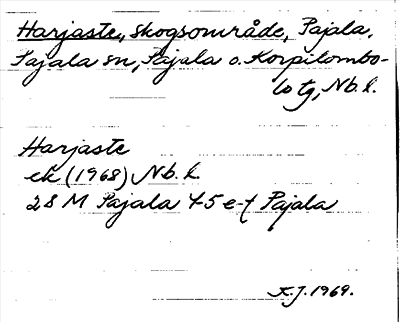 Harjaste, skogsområde, Pajala,
Pajala sn, Pajala o. Korpilombo-
lo tg, Nb. l.
Harjaste
ek (1968) Nb. l.
28 M Pajala 4-5 e-f Pajala
K.J. 1969.